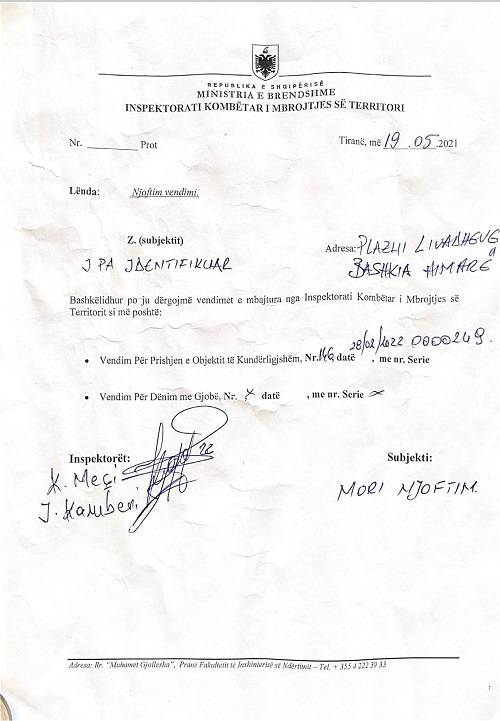 REPUBLIKA E SHQIPËRISË
MINISTRIA E BRENDSHME
INSPEKTORATI KOMBËTAR I MBROJTJES SË TERRITORI
Nr. _________ Prot
Tiranë, më 19 .05 .2021
Lënda: Njoftim vendimi.
Z. (subjektit)
I PA IDENTIFIKUAR
Adresa: PLAZHI
BASHKIA HIMARË
Bashkëlidhur po ju dërgojmë vendimet e mbajtura nga Inspektorati Kombëtar i Mbrojtjes së
Territorit si më poshtë:
• Vendim Për Prishjen e Objektit të Kundërligjshëm, Nr. 146, datë 28/02/2022, me nr. Serie 0000249.
• Vendim Për Dënim me Gjobë, Nr. datë , me nr. Serie
Inspektorët:
K. Meçi
J. Kamberi
Subjekti:
MORI NJOFTIM.
Adresa: Rr. "Muhamet Gjollesha", Pranë Fakultetit të Inxhinierisë së Ndërtimit – Tel. + 355 4 222 39 33